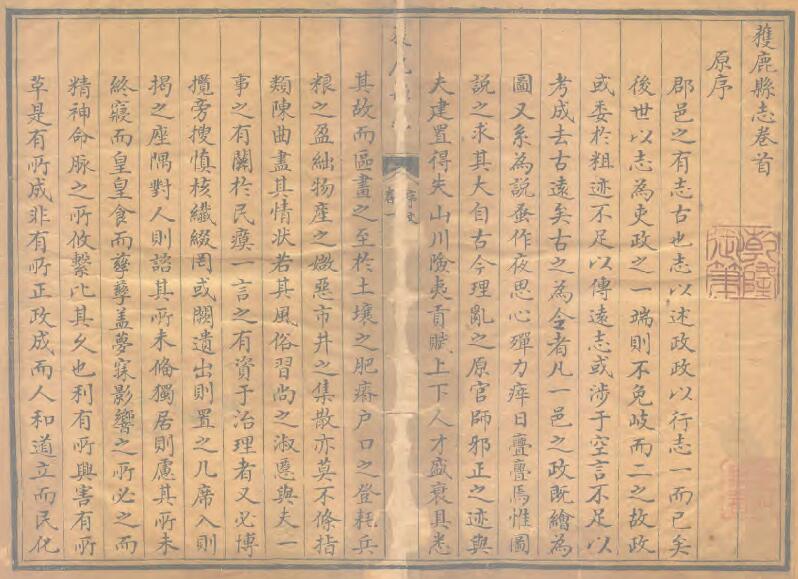 獲鹿縣志卷首
原序
郡邑之有志古也志以述政政以行志一而已矣
後世以志為吏政之一端則不免岐而二之故政
或委於粗迹不足以傳遠志或涉于空言不足以
考成去古遠矣古之為令者凡一邑之政既繪為
圖又系為説蚤作夜思心殫力瘁日亹亹焉惟圖
説之求其大自古今理亂之原官師邪正之迹與
夫建置得失山川險夷貢賦上下人才盛衰具悉
序一
其故而區畫之至於土壤之肥瘠户口之登耗兵
粮之盈絀物産之媺惡市井之集散亦莫不條指
類陳曲盡其情状若其風俗習尚之淑慝與夫一
事之有關於民瘼一言之有資于治理者又必博
攬旁搜慎核纖綴罔或闕遺出則置之几席入則
揭之座隅對人則諮其所未備獨居則慮其所未
終寢而皇皇食而孳孳盖夢寐影響之所必之而
精神命脉之所攸繫比其久也利有所興害有所
草是有所成非有所正政成而人和道立而民化
乾隆